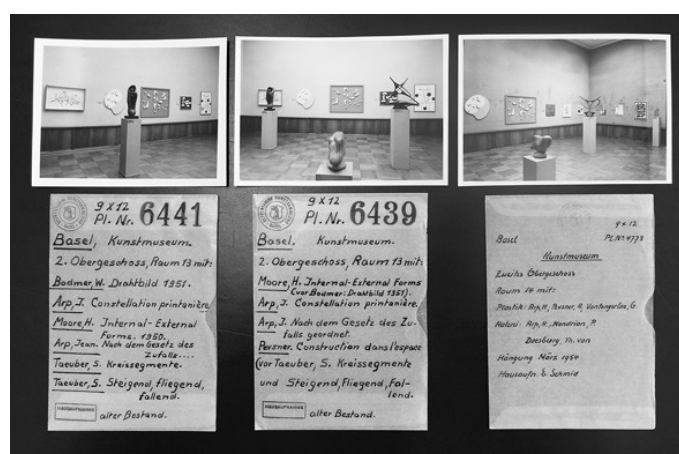 9 x 12
Pl. Nr. 6441
Basel, Kunstmuseum.
2. Obergeschoss, Raum 13 mit:
Bodmer, W. Drahtbild 1951.
Arp, J. Constellation printanière.
Moore, H. Internal-External
Forms. 1950.
Arp, Jean. Nach dem Gesetz des
Zufalls....
Taeuber, S. Kreissegmente.
Taeuber, S. Steigend, fliegend,
fallend.
alter Bestand.
9 x 12
Pl. Nr. 6439
Basel. Kunstmuseum.
2. Obergeschoss, Raum 13 mit:
Moore, H. Internal-External Forms
(vor Bodmer: Drahtbild 1951).
Arp, J. Constellation printanière.
Arp, J. Nach dem Gesetz des Zu-
falls geordnet.
Pevsner. Construction dans l'espace
(vor Taeuber, S. Kreissegmente
und Steigend, Fliegend, Fal-
lend.
alter Bestand.
9 x 12
Basel Pl. Nr. 4773
Kunstmuseum
Zweites Obergeschoss
Raum 14 mit:
Plastik: Arp, H, Pevsner, A, Vantongerloo, G.
Malerei: Arp, H, Mondrian, P.
Doesburg, Th. van
Hängung März 1954
Hausaufn. b. Schmid